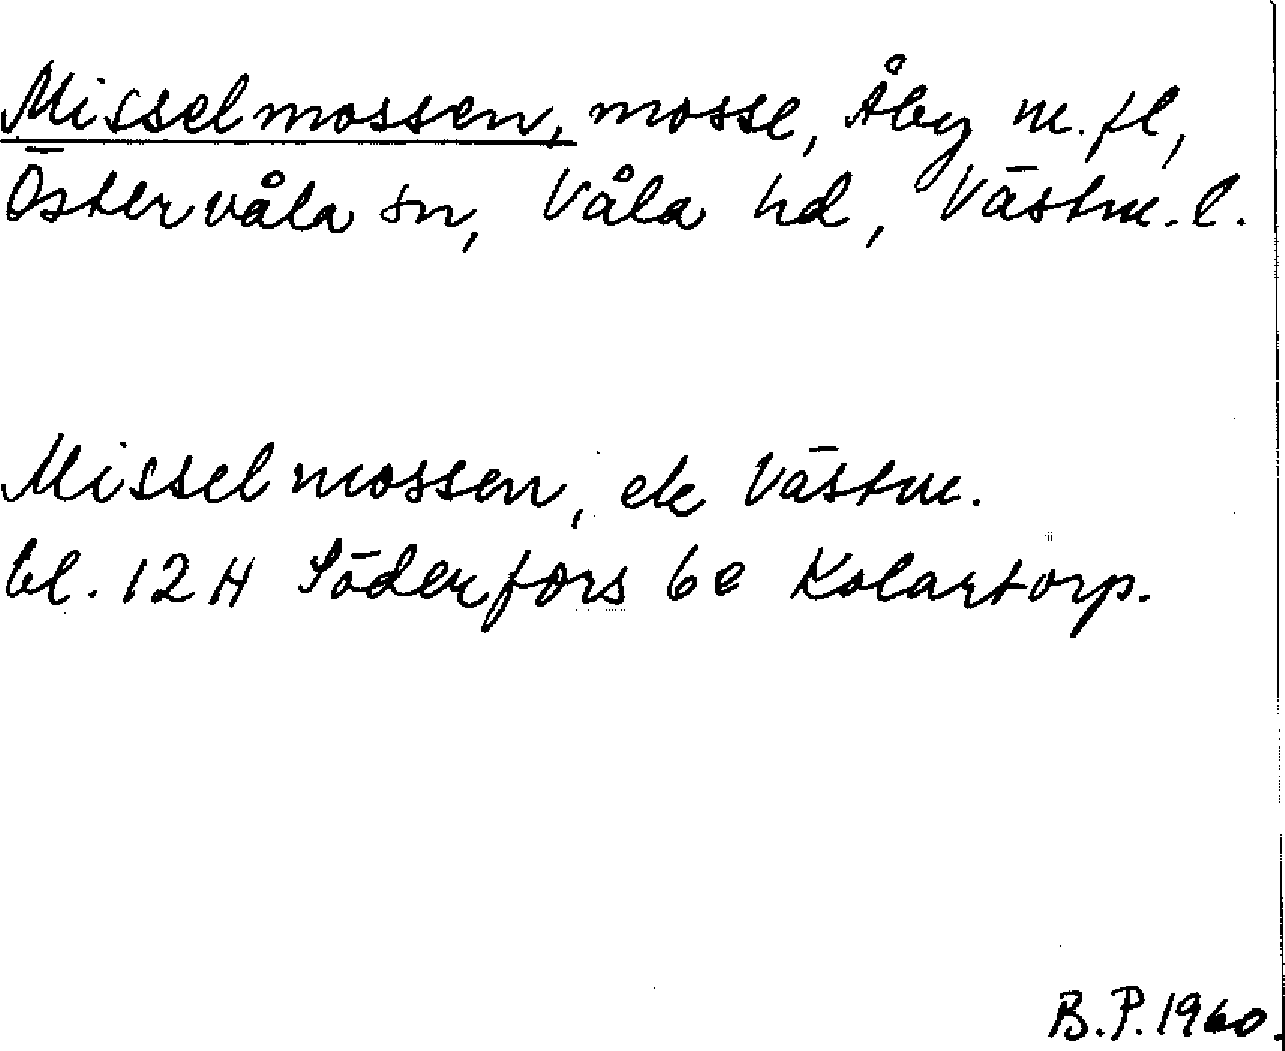 Misselmossen, mosse, Åby m.fl,
Östervåla sn, Våla hd, Västm. l.
Misselmossen, ek Västm.
bl. 12H Söderfors 6e Kolartorp.
B.P. 1960.